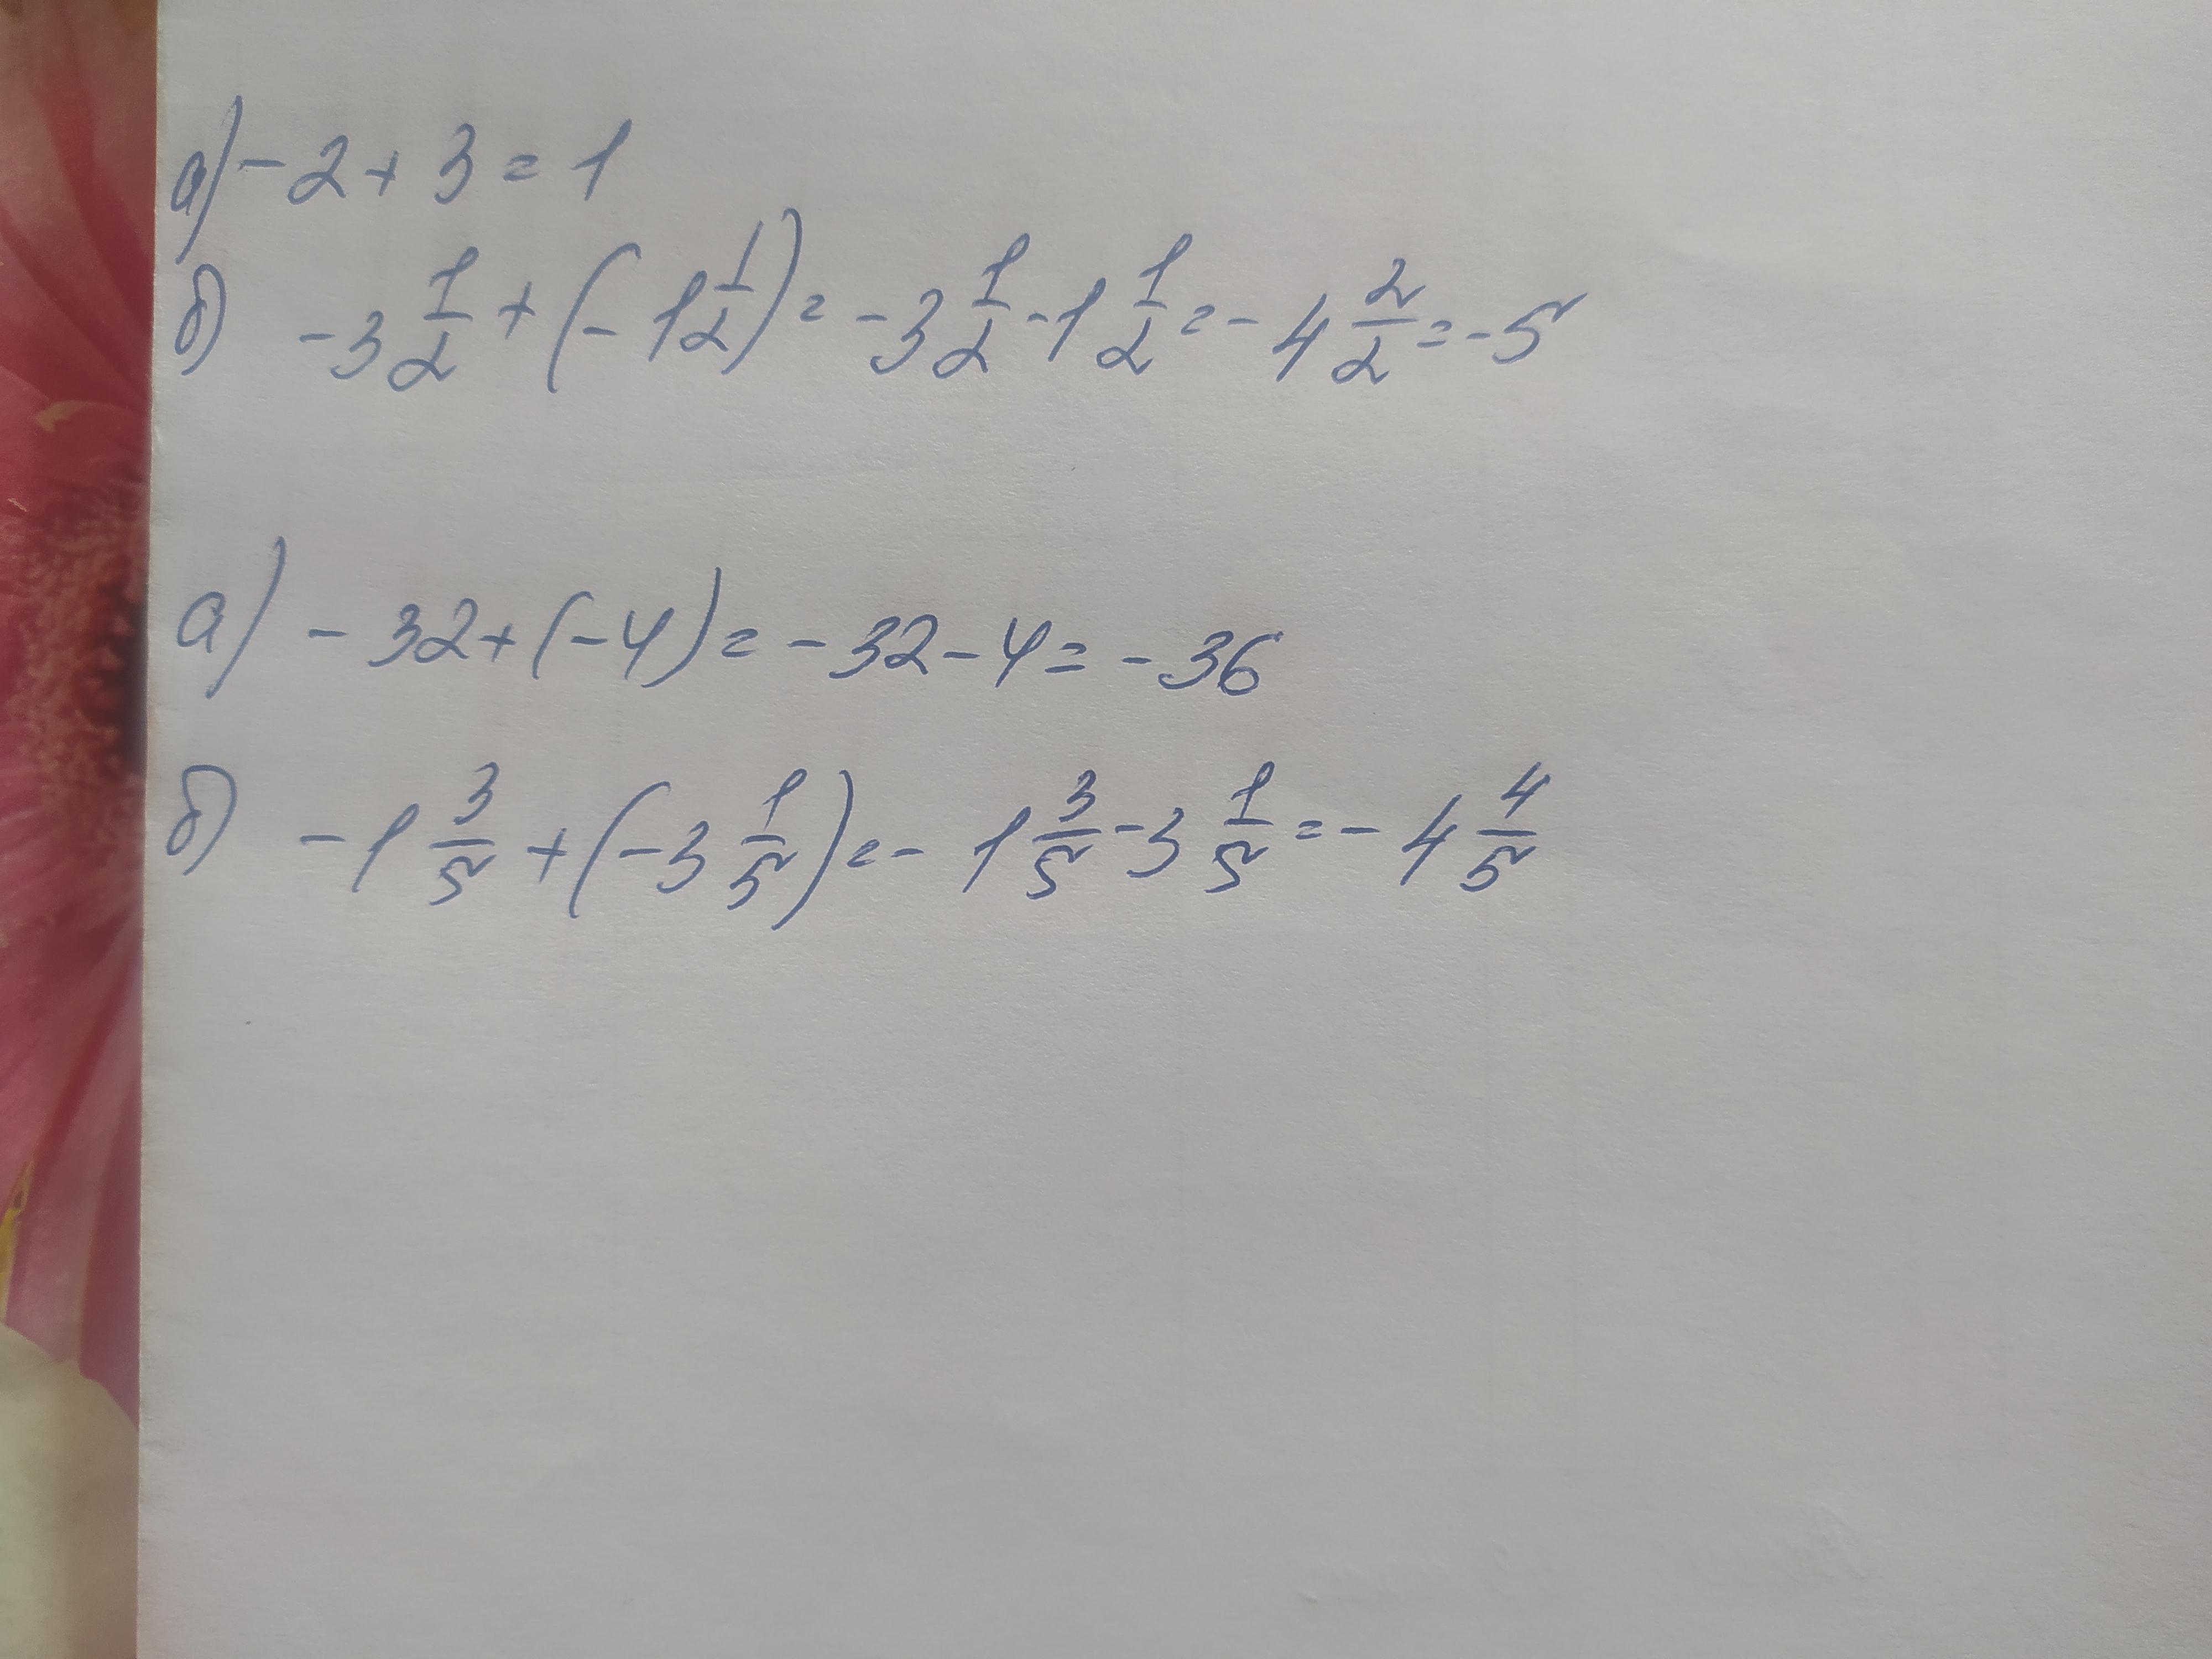 а) -2+3=1
б) -3 1/2 + (-1 1/2) = -3 1/2 - 1 1/2 = -4 2/2 = -5
а) -32+(-4) = -32-4 = -36
б) -1 3/5 + (-3 1/5) = -1 3/5 - 3 1/5 = -4 4/5